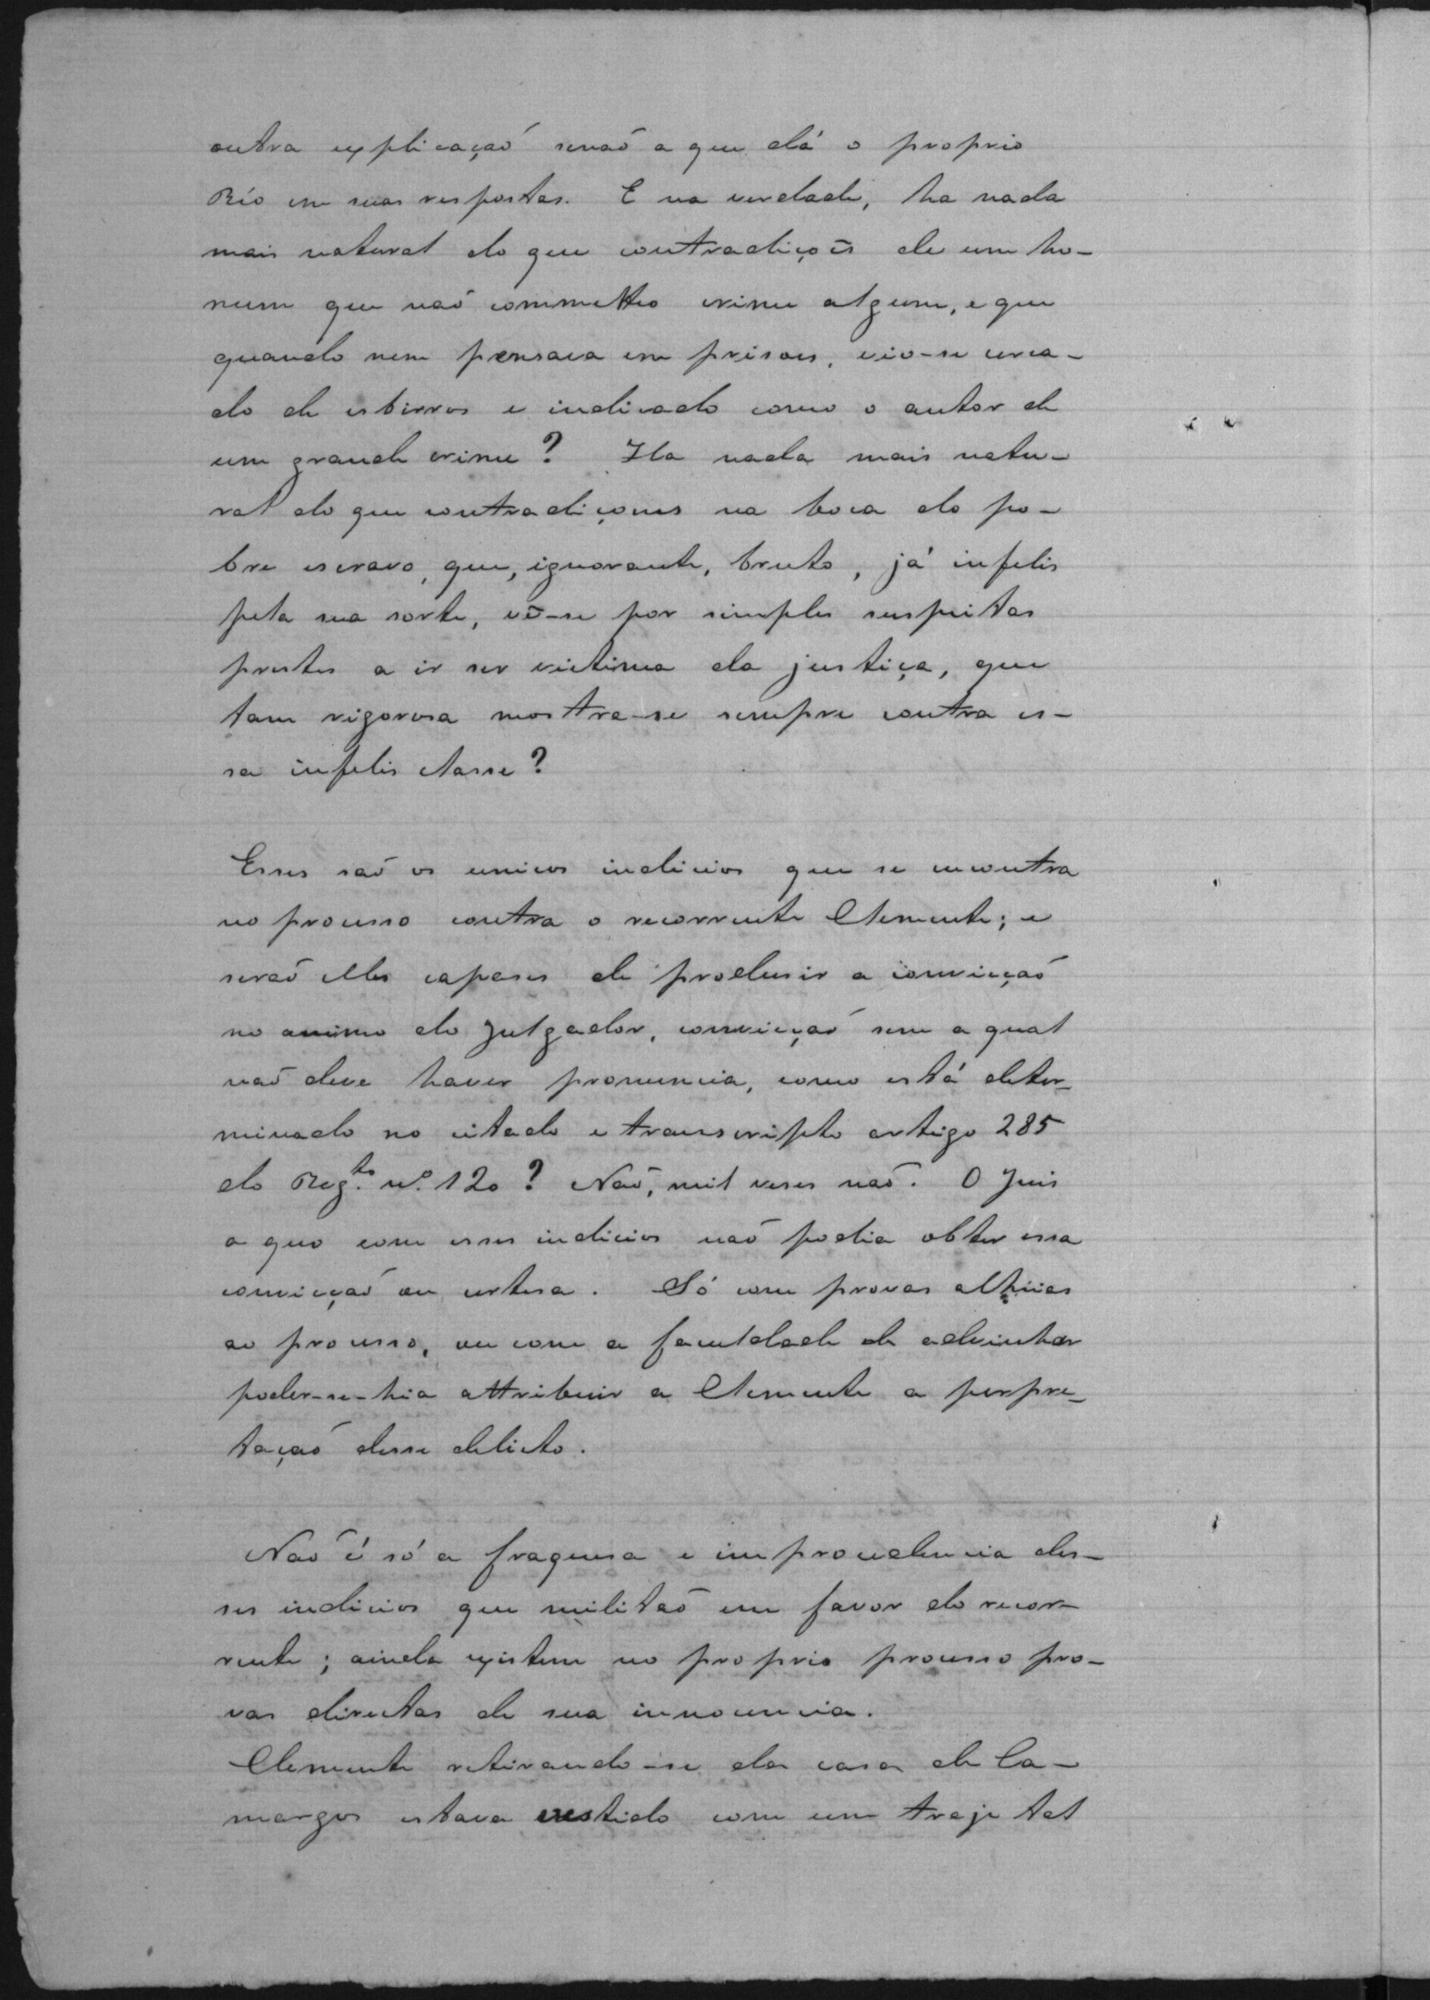 outra explicação senão a que dá o proprio
Réo em suas respostas. E na verdade, ha nada
mais natural do que contradições de um ho-
mem que não commetteo crime algum, e que
quando nem pensava em prisões, vio-se cerca-
do de esbirros e indicado como o autor de
um grande crime? Ha nada mais natu-
ral do que contradiçoens na boca do po-
bre escravo, que, ignorante, bruto, já infelis
pela sua sorte, vê-se por simples suspeitas
prestes a ir ser victima da justiça, que
tam rigorosa mostra-se sempre contra es-
sa infelis classe?

Esses são os unicos indicios que se encontra
no processo contra o recorrente Clemente; e
serão elles capases de produsir a convicção
no animo do Julgador, convicção sem a qual
não deve haver pronuncia, como está deter-
minado no citado e transcripto artigo 285
do Reg.to nº. 120? Não, mil veses não. O Juis
a quo com esses indicios não podia obter essa
convicção ou certesa. Só com provas alheias
ao processo, ou com a faculdade de advinhar
poder-se-hia attribuir a Clemente a perpre-
tação desse delicto.

Não é só a fraquesa e improcedencia des-
ses indicios que militão em favor do recor-
rente; ainda existem no proprio processo pro-
vas directas de sua innocencia.
Clemente retirando-se da casa de Ca-
margos estava vestido com um traje tal